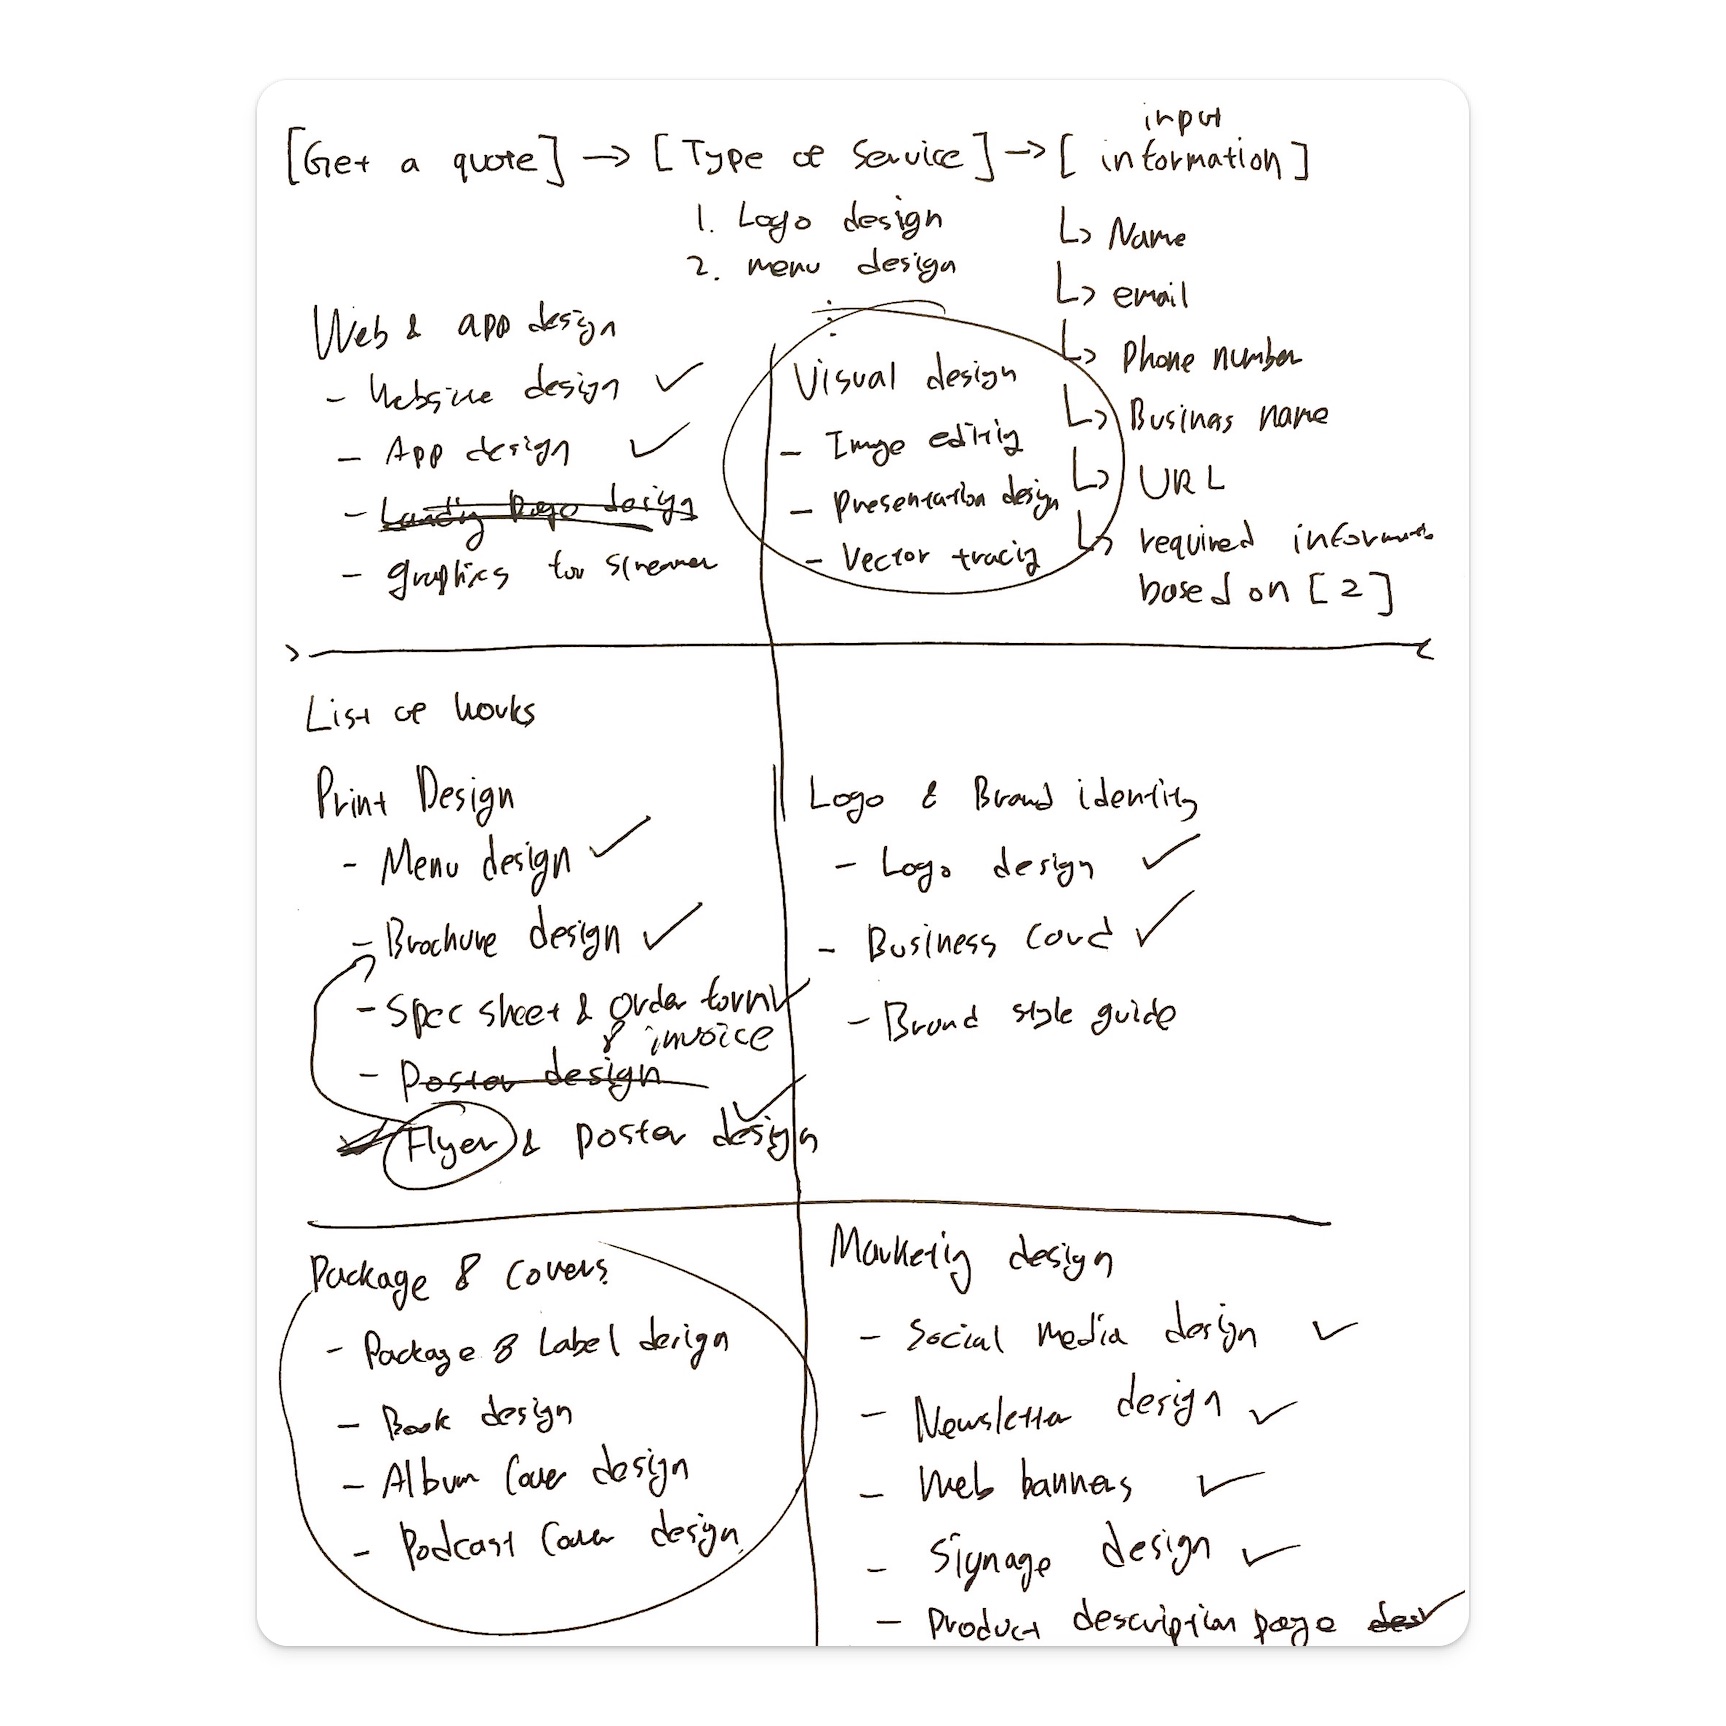 [Get a quote] → [Type of Service] → [input information]
1. Logo design
2. menu design
↳ Name
↳ email
↳ Phone number
↳ Business name
↳ URL
↳ required
based on [2]
Web & app design
- Website design ✓
- App design ✓
- Landing page design
- graphics for streamer
Visual design
- Image editing
- Presentation design
- Vector tracing
List of works
Print Design
- Menu design ✓
- Brochure design ✓
- Spec sheet & Order form ✓
& invoice
- Poster design
Flyer & poster design ✓
Logo & Brand identity
- Logo design ✓
- Business card ✓
- Brand style guide
Package & Covers
- Package & Label design
- Book design
- Album Cover design
- Podcast Cover design
Marketing design
- Social Media design ✓
- Newsletter design ✓
- Web banners ✓
- Signage design ✓
- Product description page ✓